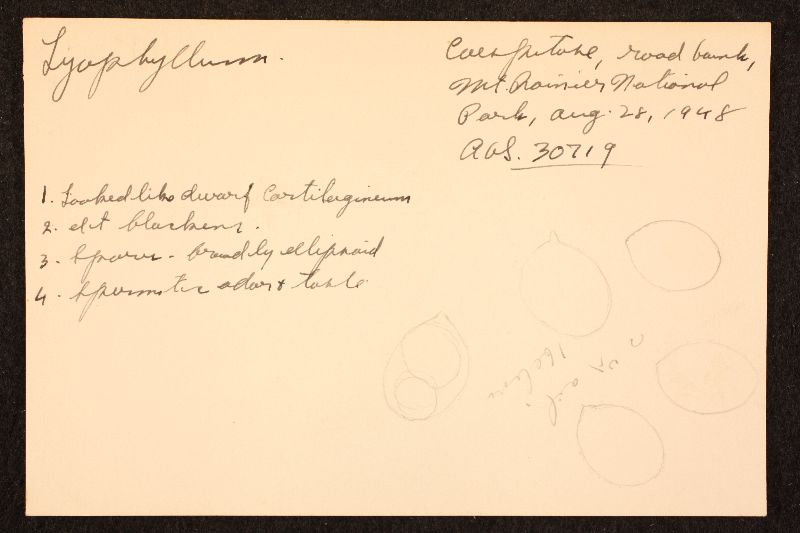 Lyophyllum.
road bank,
Mt. Rainier National
Park, Aug. 28, 1948
AHS. 30719
1. Looked like dwarf Cartilagineum
2. blackens.
3. Spores - broadly ellipsoid
4. Spermatic odor & taste